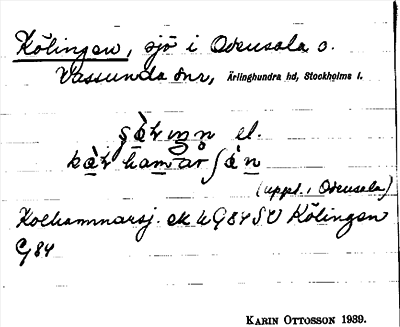 Kölingen, sjö i Odensala o.
Vassunda snr, Ärlinghundra hd, Stockholms l.
el.
(uppt. i Odensala)
Kolhammarsj. ek u G84 SO Kölingen
G84
KARIN OTTOSSON 1939.